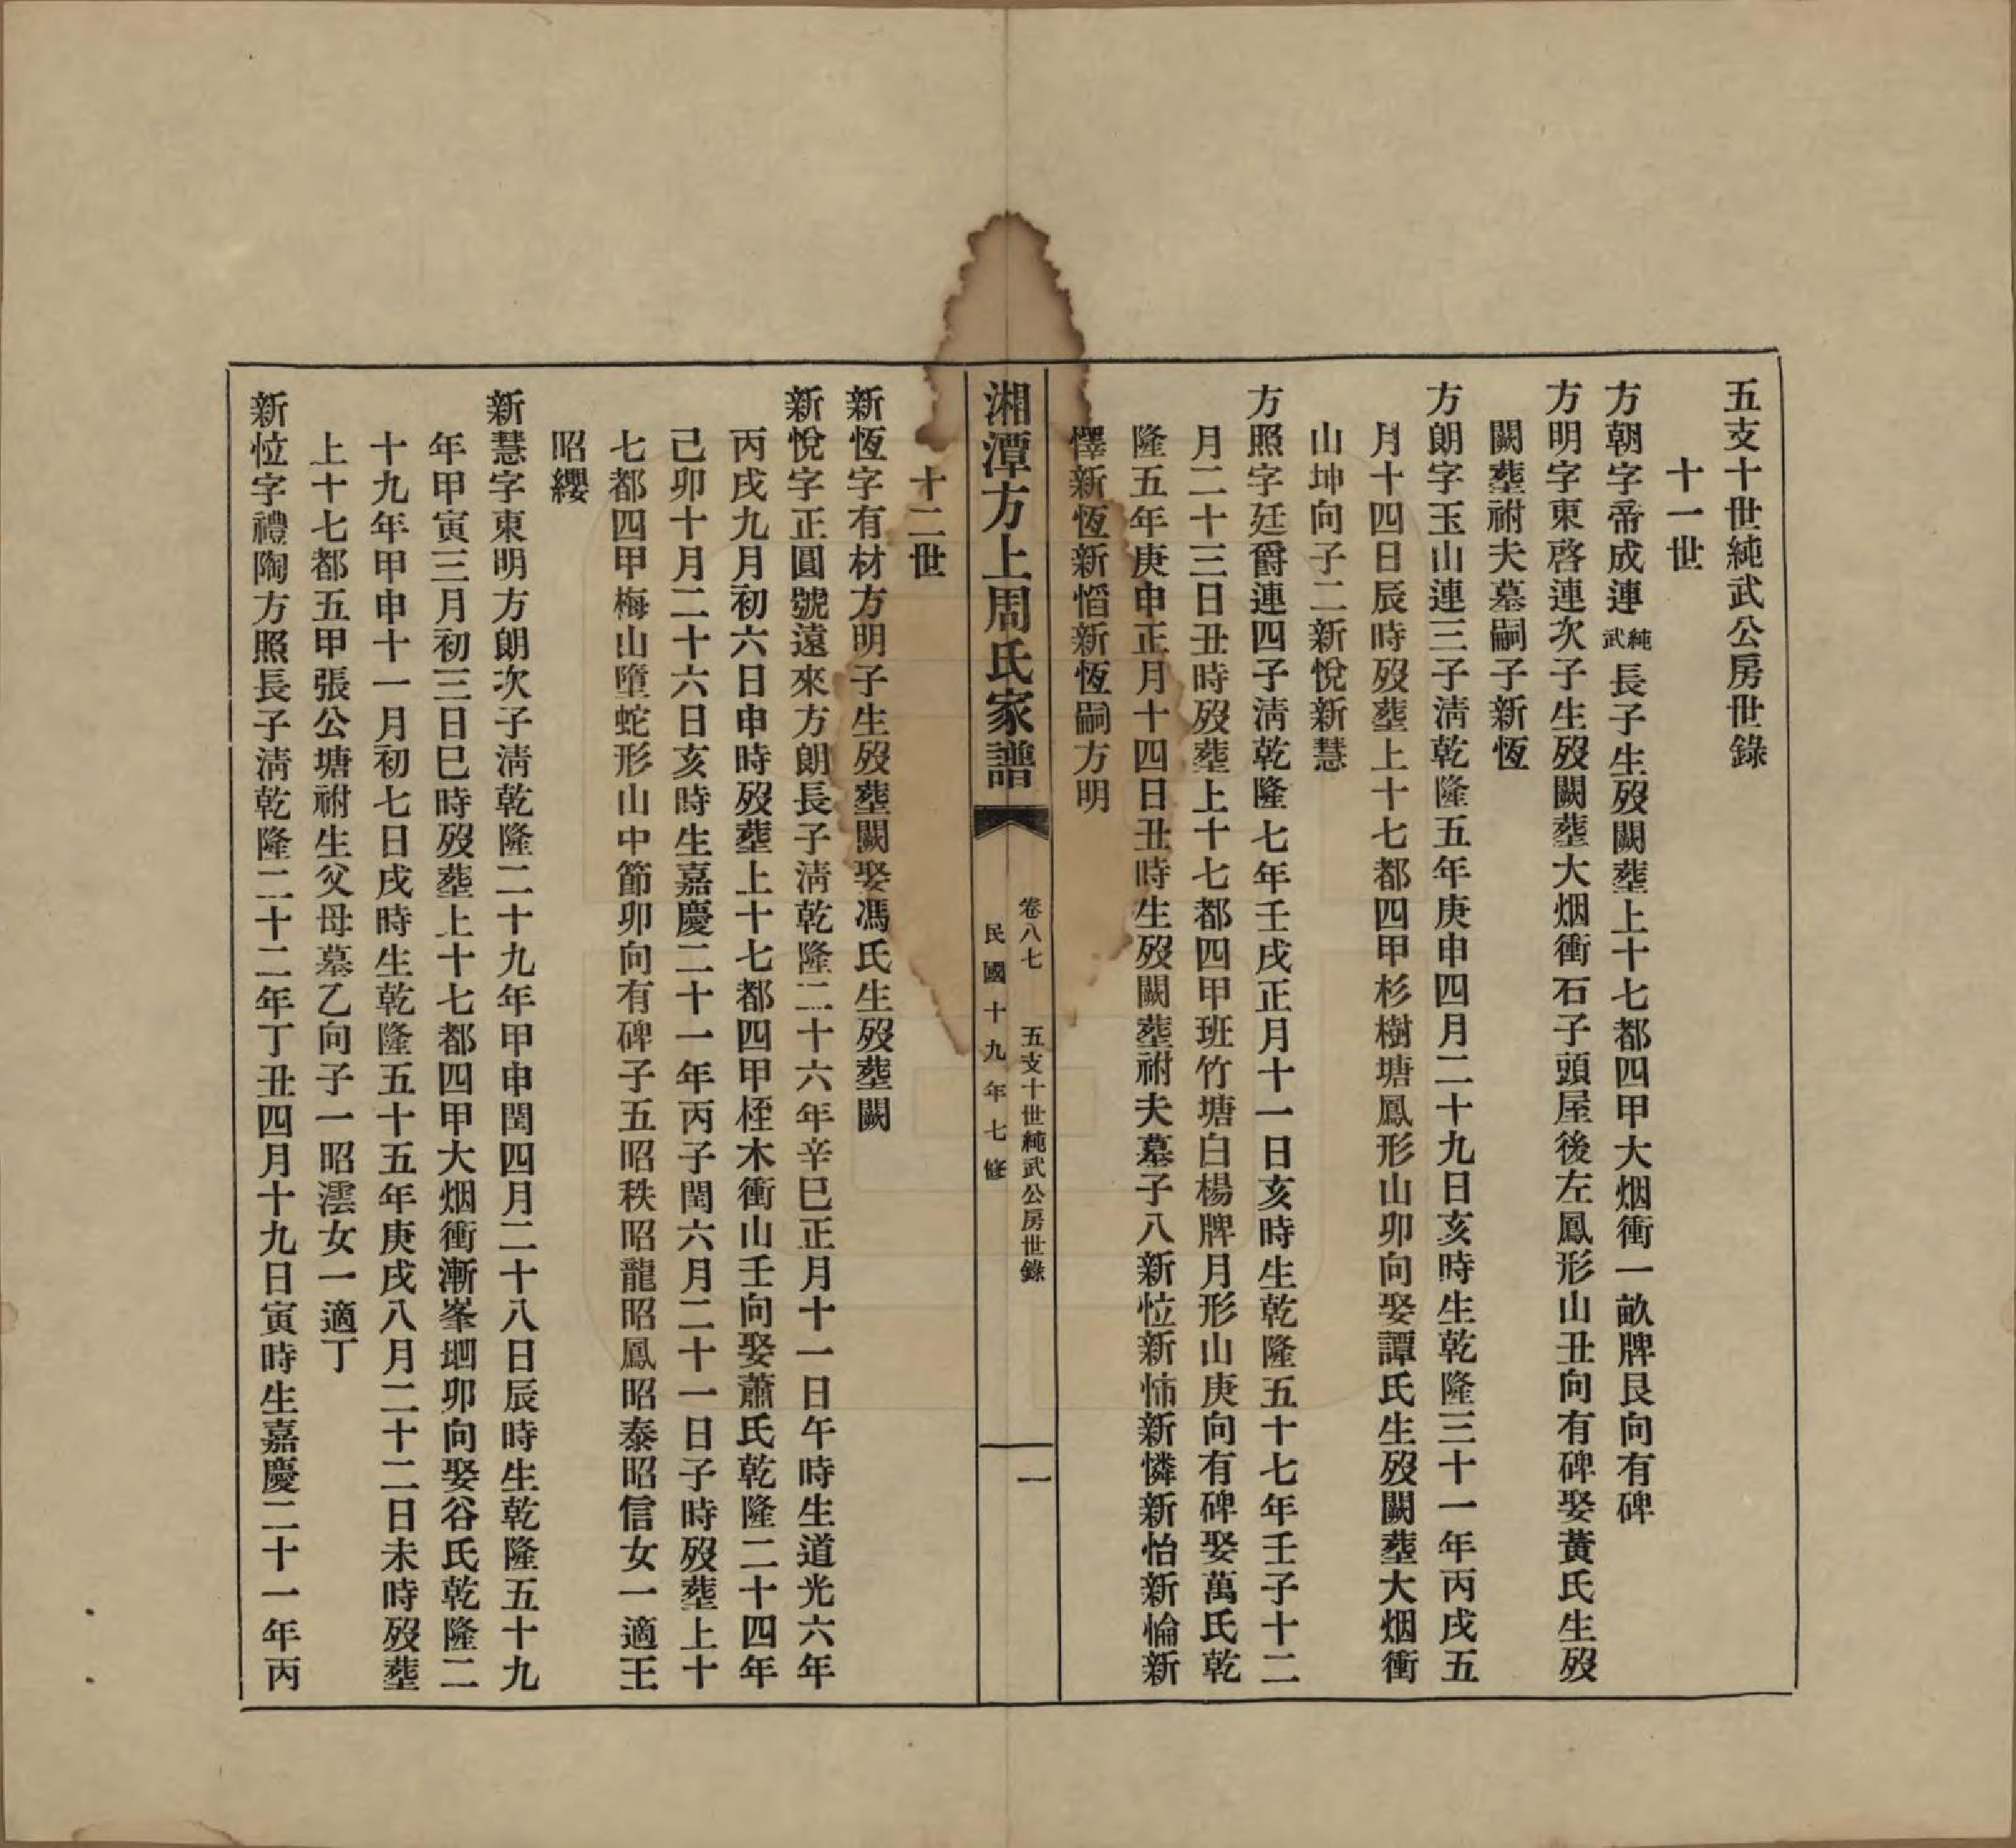 五支十世純武公房世錄
十一世
方朝字帝成連純武長子生歿闕葬上十七都四甲大烟衝一畝牌艮向有碑
方明字東啓連次子生歿闕葬大烟衝石子頭屋後左鳳形山丑向有碑娶黃氏生歿
闕葬祔夫墓嗣子新恆
方朗字玉山連三子淸乾隆五年庚申四月二十九日亥時生乾隆三十一年丙戌五
月十四日辰時歿葬上十七都四甲杉樹塘鳳形山卯向娶譚氏生歿闕葬大烟衝
山坤向子二新悅新慧
方照字廷爵連四子淸乾隆七年壬戌正月十一日亥時生乾隆五十七年壬子十二
月二十三日丑時歿葬上十七都四甲班竹塘白楊牌月形山庚向有碑娶萬氏乾
隆五年庚申正月十四日丑時生歿闕葬祔夫墓子八新怔新怖新憐新怡新惀新
懌新恆新慆新恆嗣方明
湘潭方上周氏家譜
卷八七 五支十世純武公房世錄
民國十九年七修
一
十二世
新恆字有材方明子生歿葬闕娶馮氏生歿葬闕
新悅字正圓號遠來方朗長子淸乾隆二十六年辛巳正月十一日午時生道光六年
丙戌九月初六日申時歿葬上十七都四甲桎木衝山壬向娶蕭氏乾隆二十四年
己卯十月二十六日亥時生嘉慶二十一年丙子閏六月二十一日子時歿葬上十
七都四甲梅山墮蛇形山中節卯向有碑子五昭秩昭龍昭鳳昭泰昭信女一適王
昭纓
新慧字東明方朗次子淸乾隆二十九年甲申閏四月二十八日辰時生乾隆五十九
年甲寅三月初三日巳時歿葬上十七都四甲大烟衝漸峯𡎖卯向娶谷氏乾隆二
十九年甲申十一月初七日戌時生乾隆五十五年庚戌八月二十二日未時歿葬
上十七都五甲張公塘祔生父母墓乙向子一昭澐女一適丁
新㤙字禮陶方照長子淸乾隆二十二年丁丑四月十九日寅時生嘉慶二十一年丙